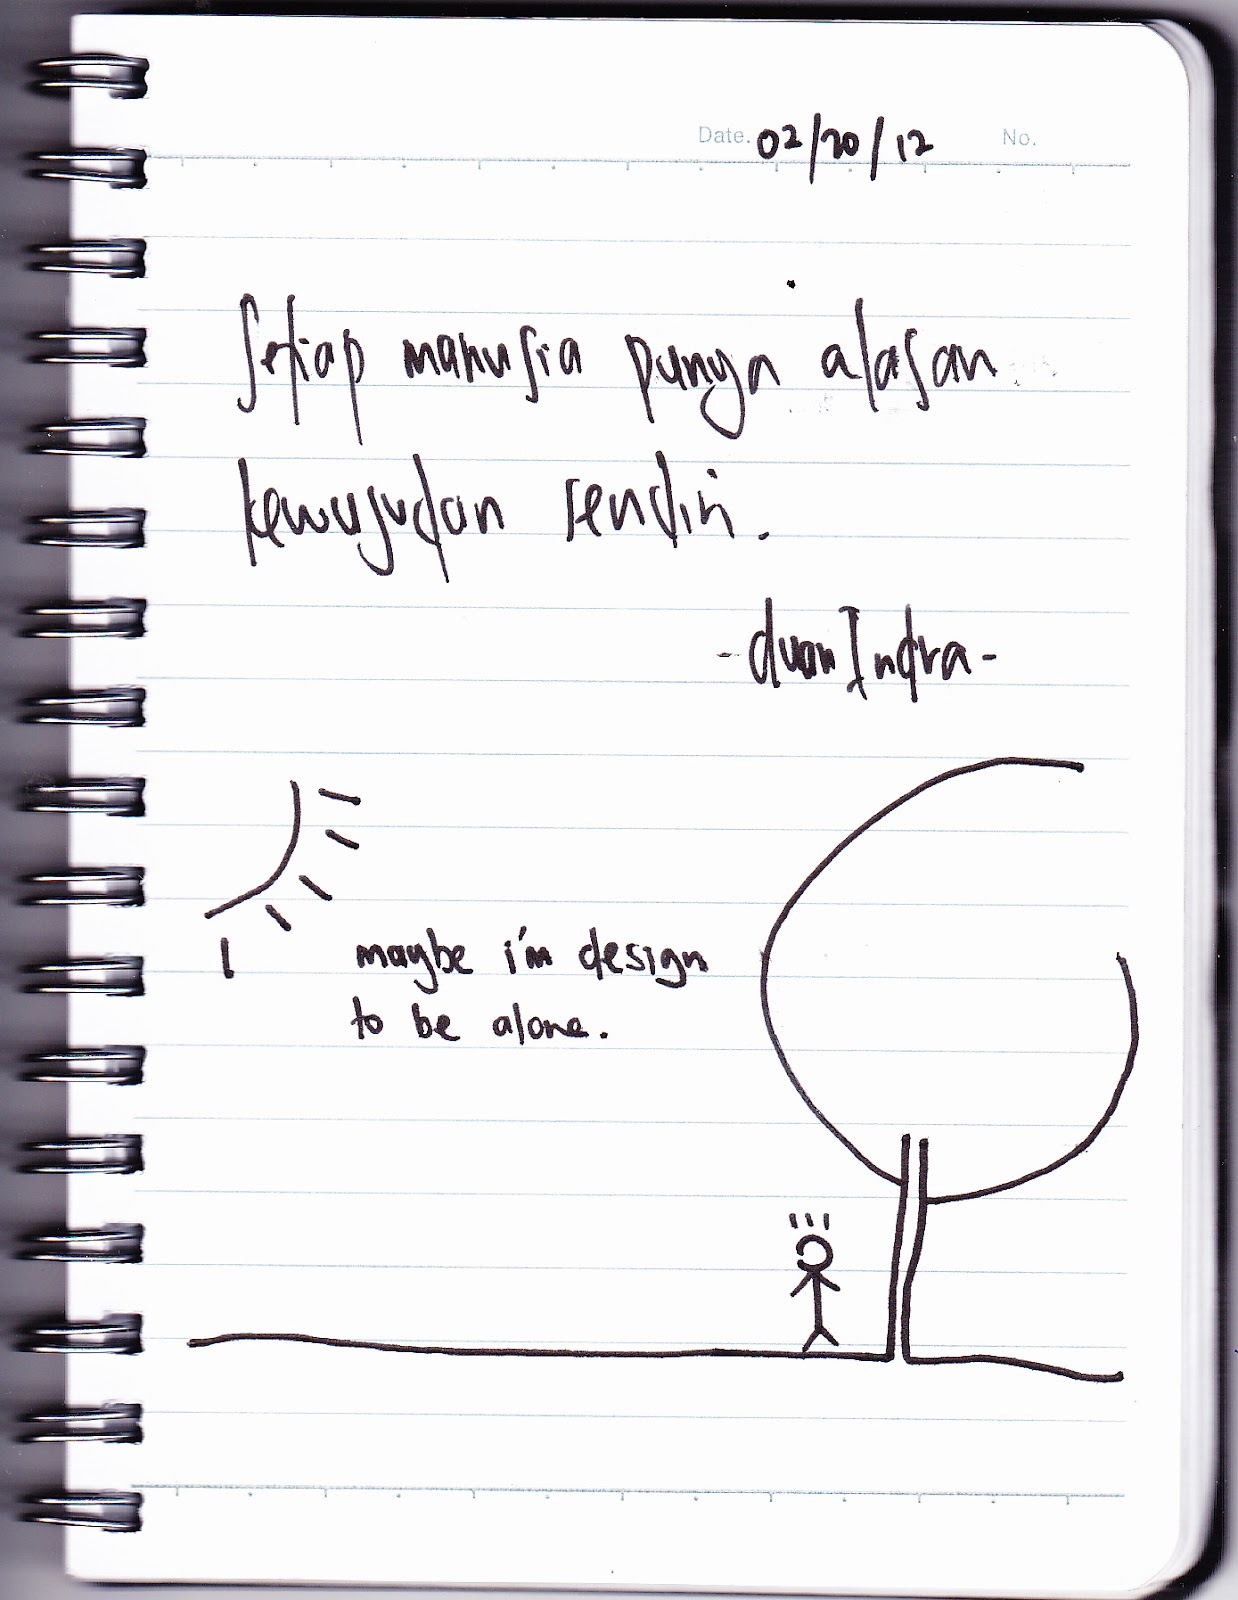 Date. 02/20/12 No.
Setiap manusia punya alasan
kewujudan sendiri.
-duan Indra-
maybe i'm design
to be alone.